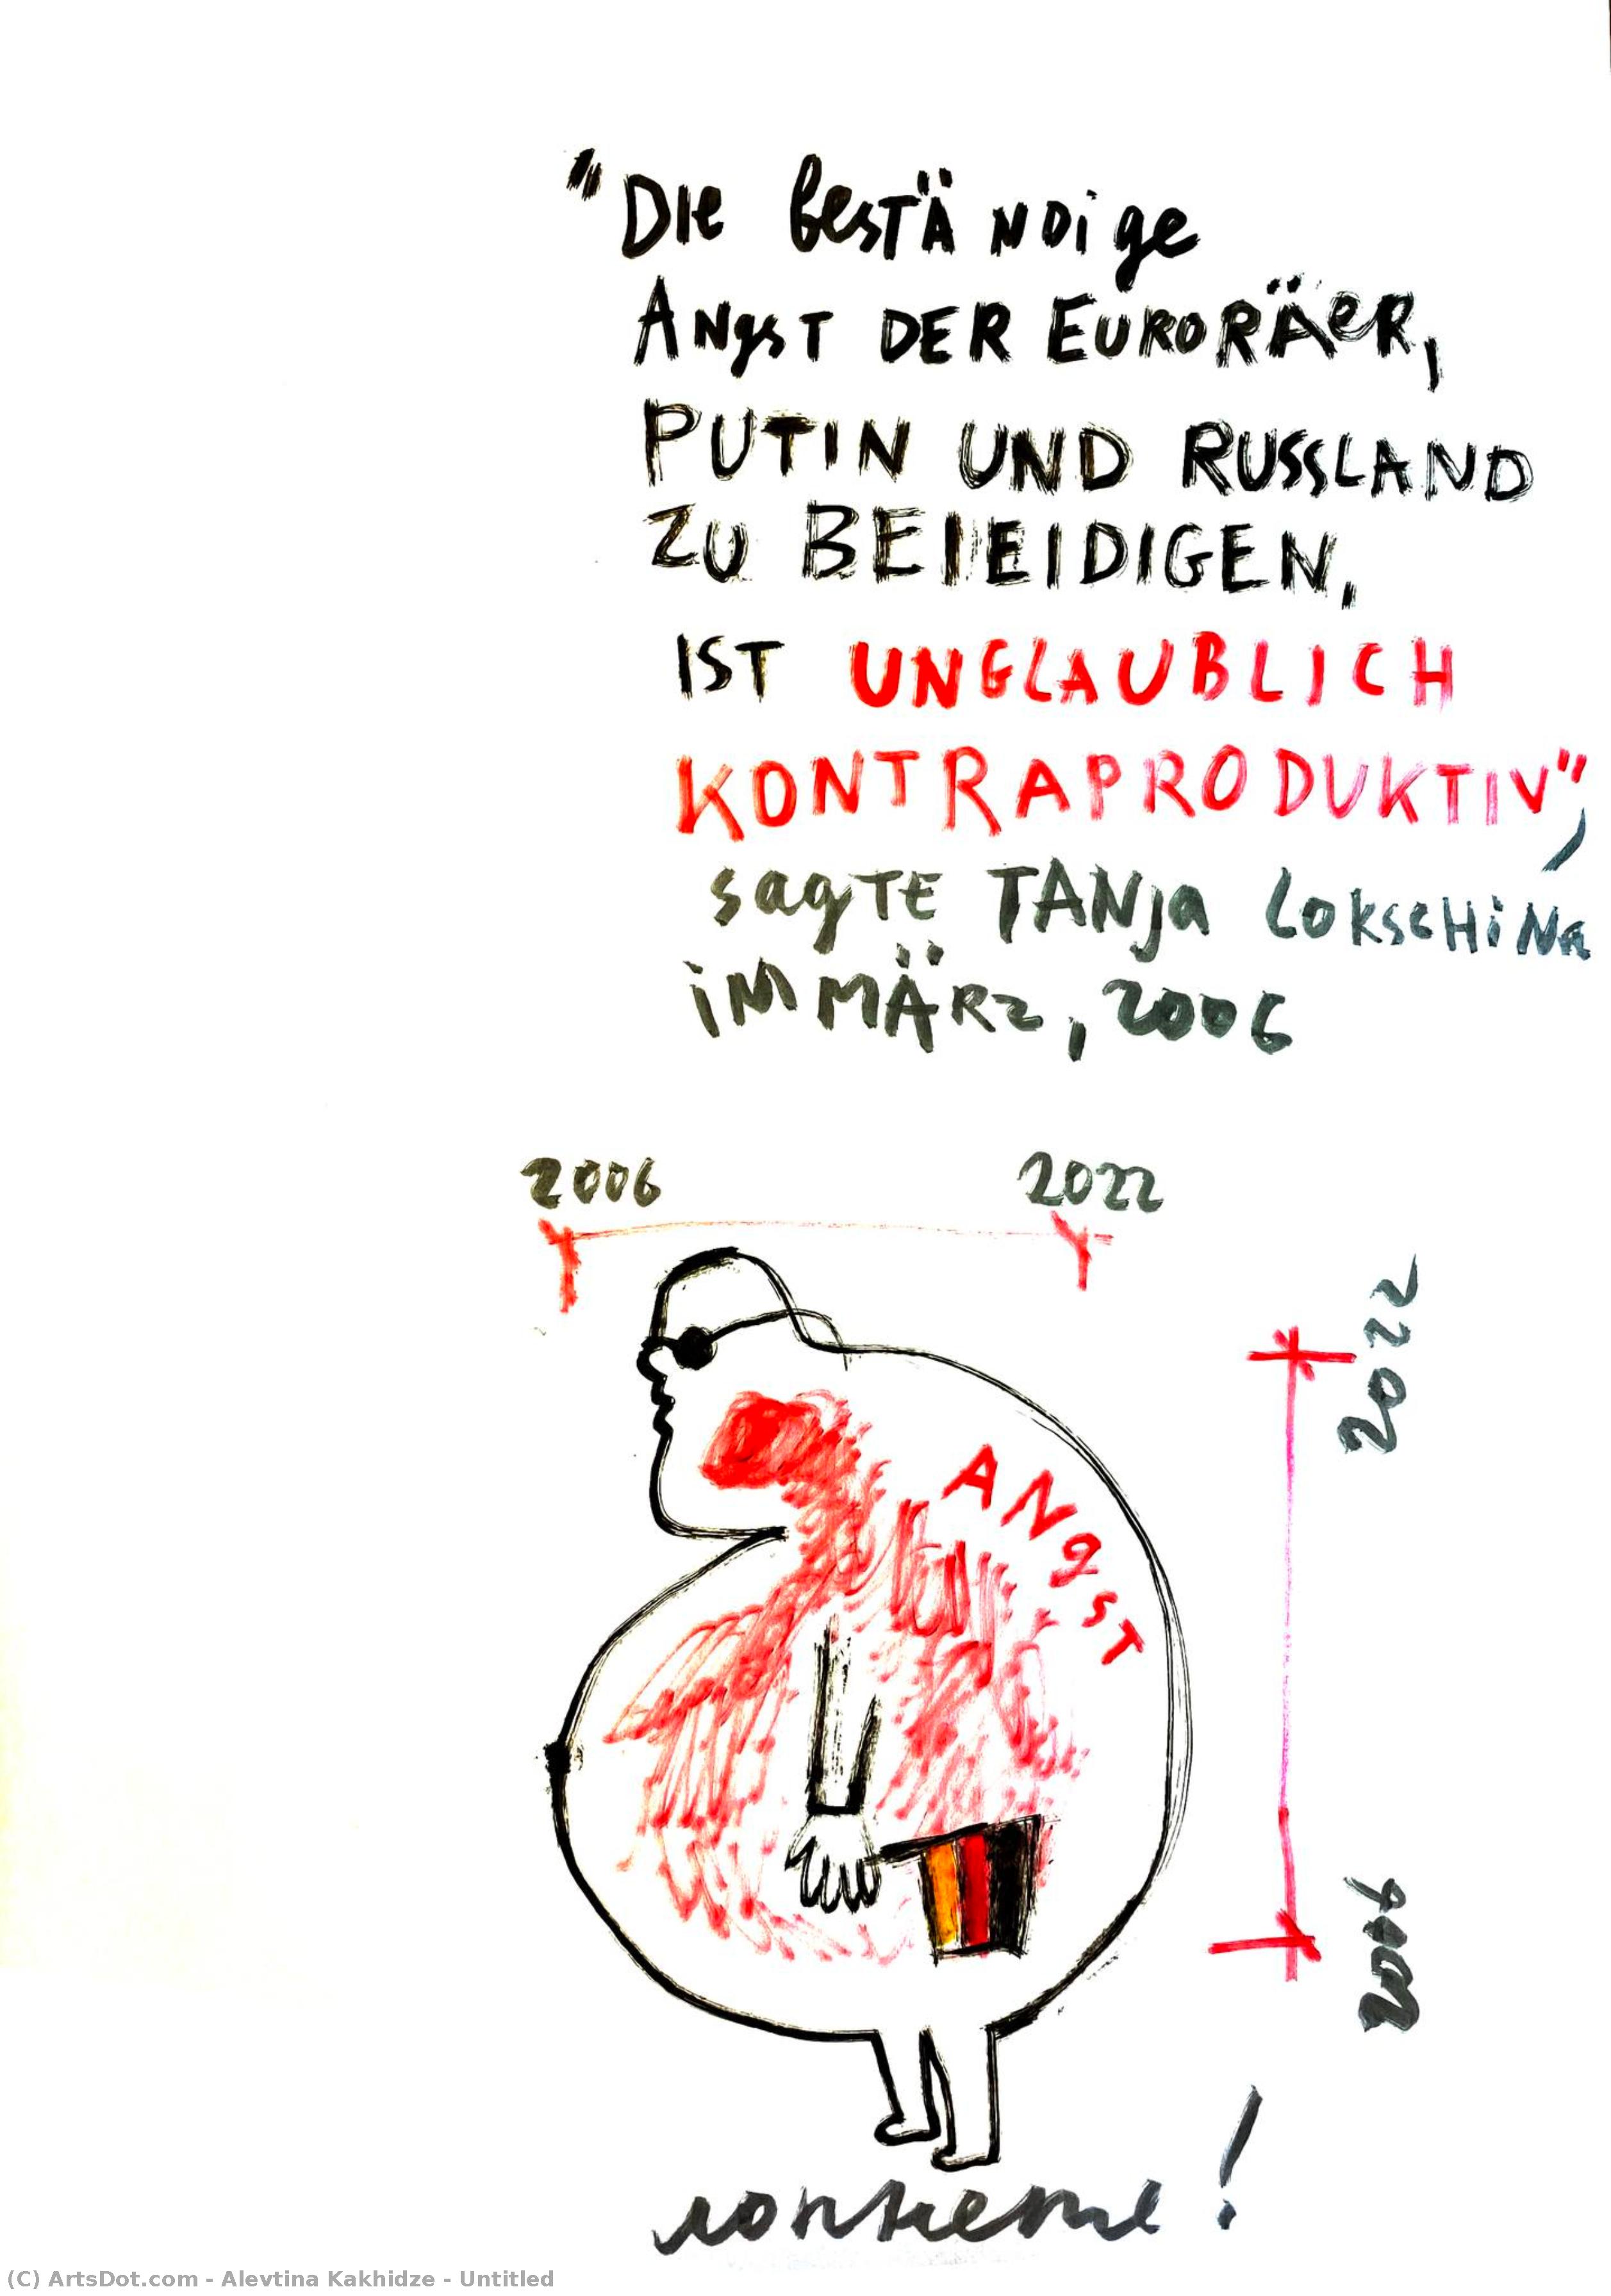 "Die beständige
Angst der EuroRäer,
PUTIN UND RUSSLAND
ZU BElEIDIGEN,
IST UNGLAUBLICH
KONTRAPRODUKTIV",
sagTE TANja LokscHiNa
iM MÄRz, 2006
2006 2022
2022
ANgsT
2006
лопнете!
(C) ArtsDot.com - Alevtina Kakhidze - Untitled